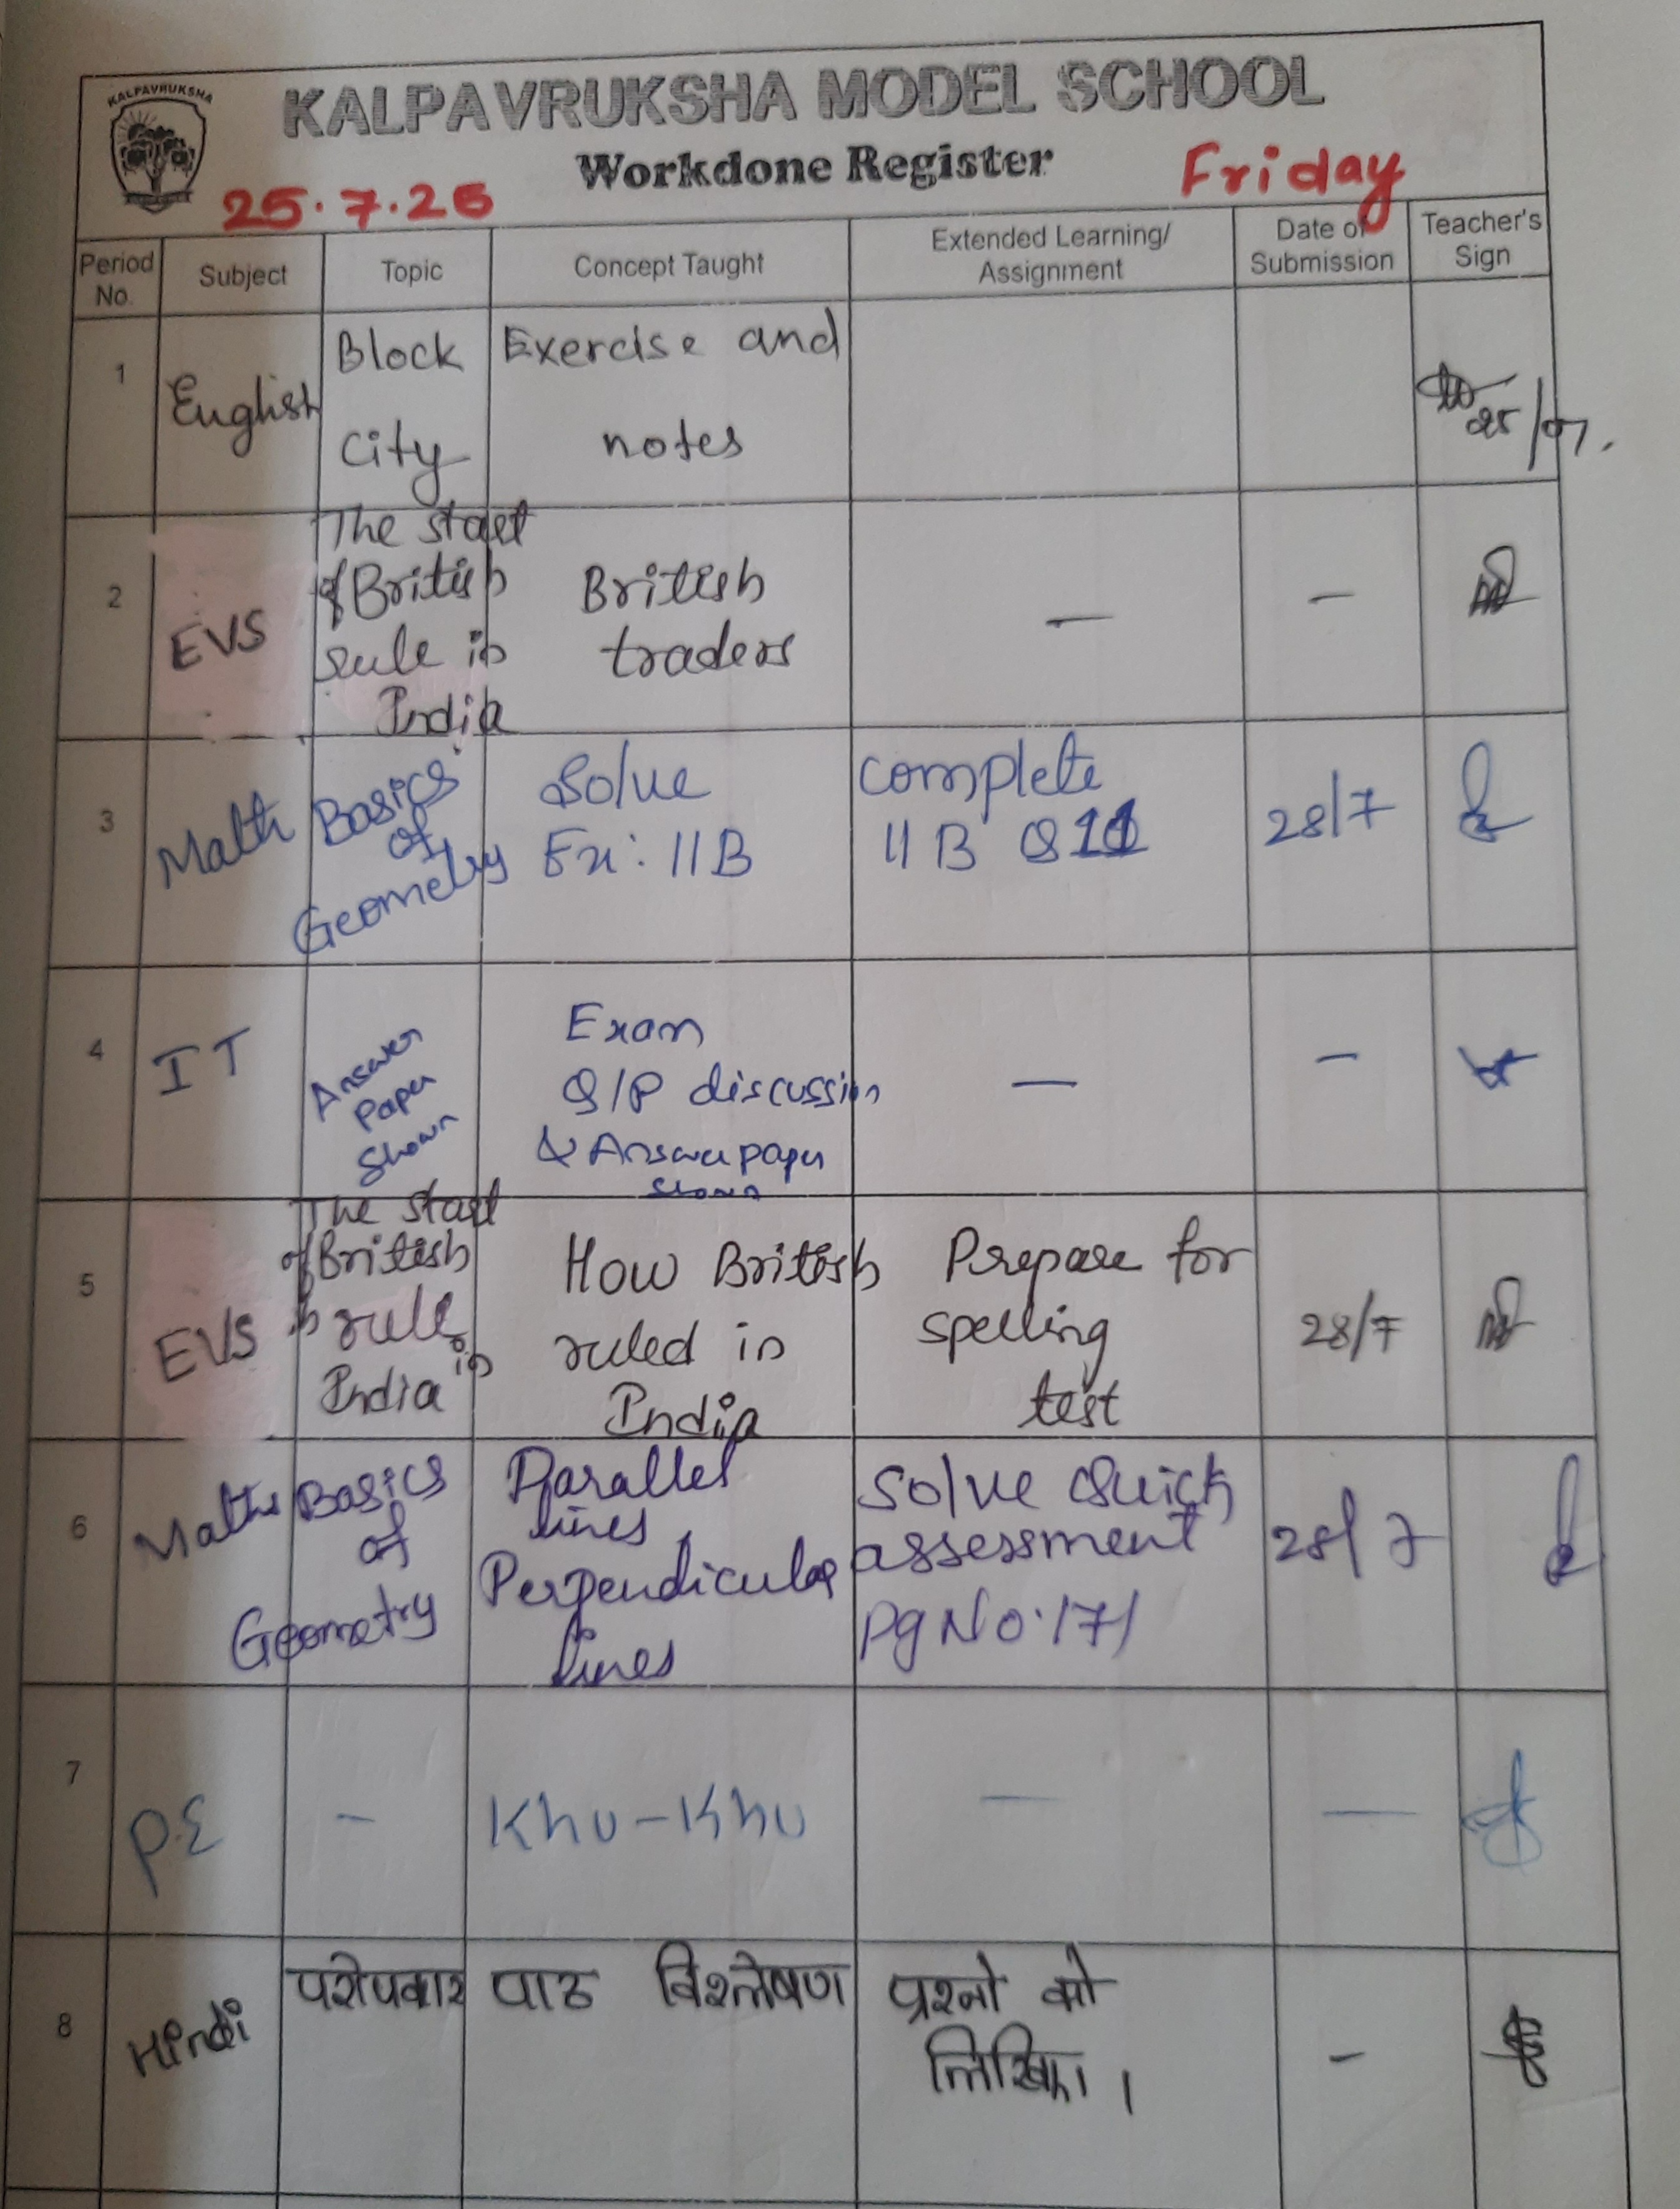 KALPAVRUKSHA
KALPAVRUKSHA MODEL SCHOOL
Workdone Register
25.7.25 Friday
Period No. Subject Topic Concept Taught Extended Learning/ Assignment Date of Submission Teacher's Sign
1 English Block City Exercise and notes 25/07.
2 EVS The start of British rule in India British traders — –
3 Math Basics of Geometry Solve Ex: 11B complete 11 B Q 28/7
4 IT Answer Paper Shown Exam Q/P discussion & Answer paper shown — –
5 EVS The start of British rule in India How British ruled in India Prepare for spelling test 28/7
6 Maths Basics of Geometry Parallel lines Perpendicular lines Solve Quick assessment Pg No. 171 28/7
7 P.E – Kho-Kho — —
8 Hindi परोपकार पाठ विश्लेषण प्रश्नो को लिखिए। –